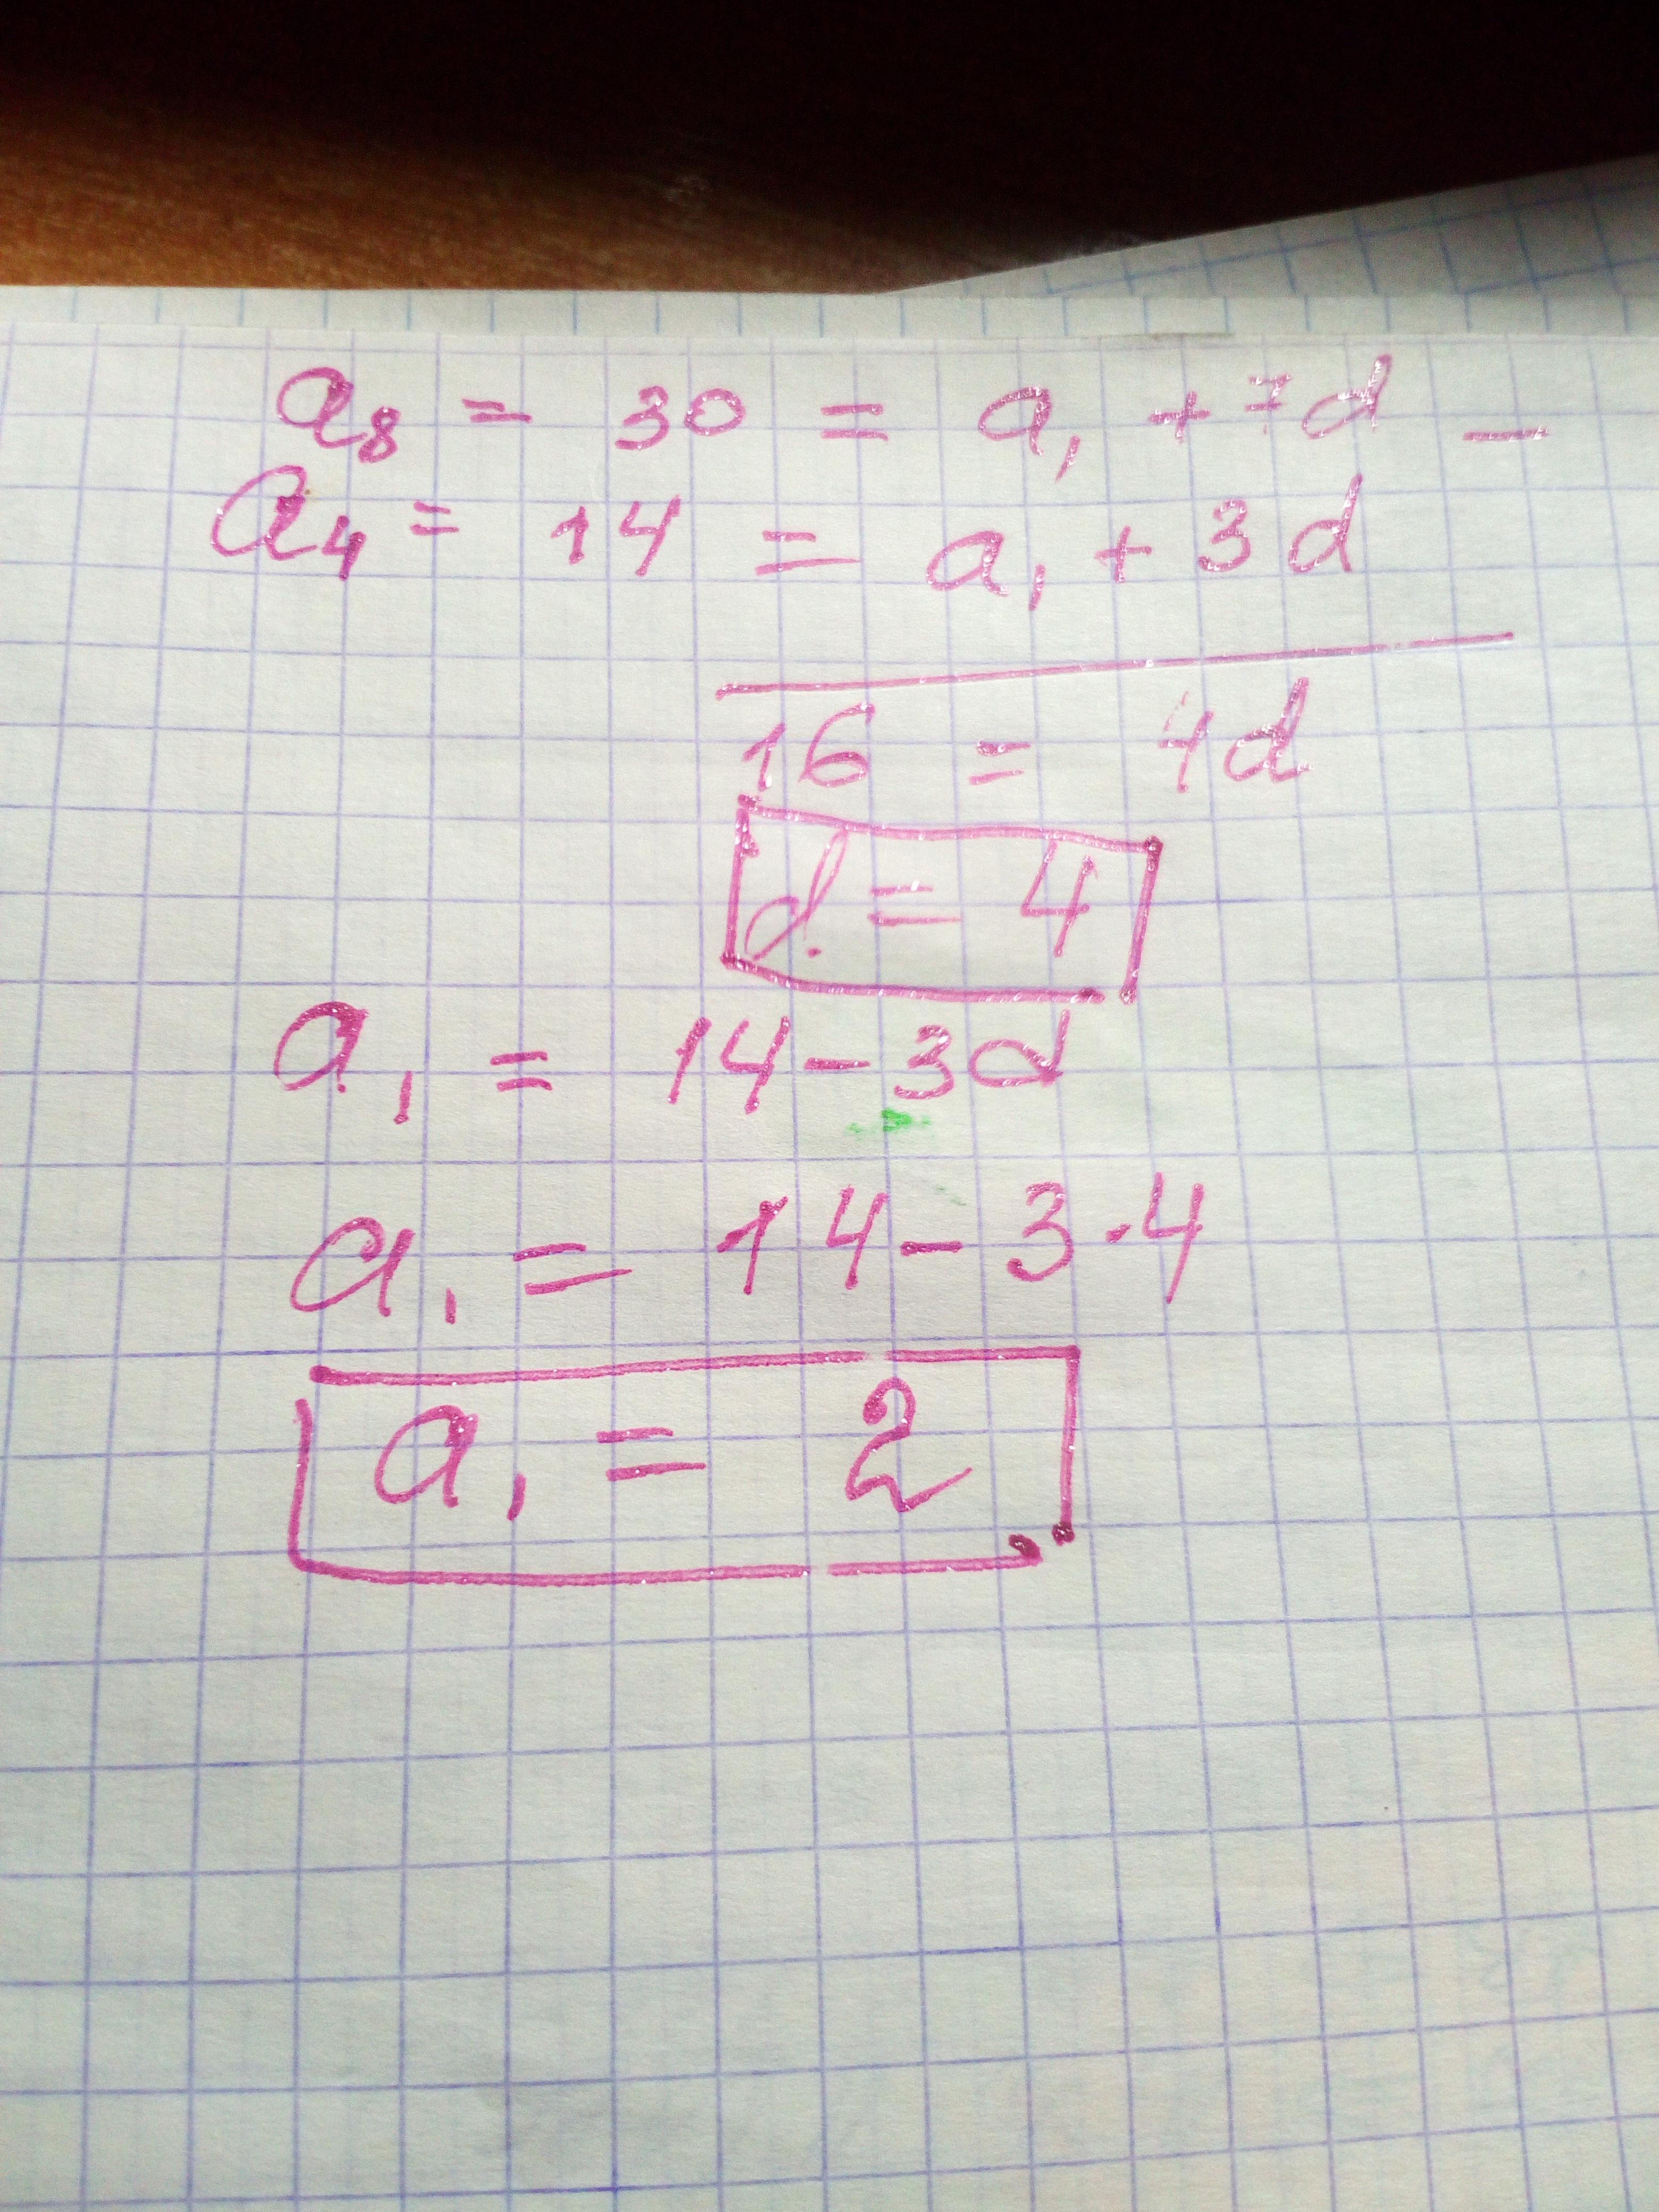 a₈ = 30 = a₁ + 7d −
a₄ = 14 = a₁ + 3d
16 = 4d
d = 4
a₁ = 14 − 3d
a₁ = 14 − 3 · 4
a₁ = 2